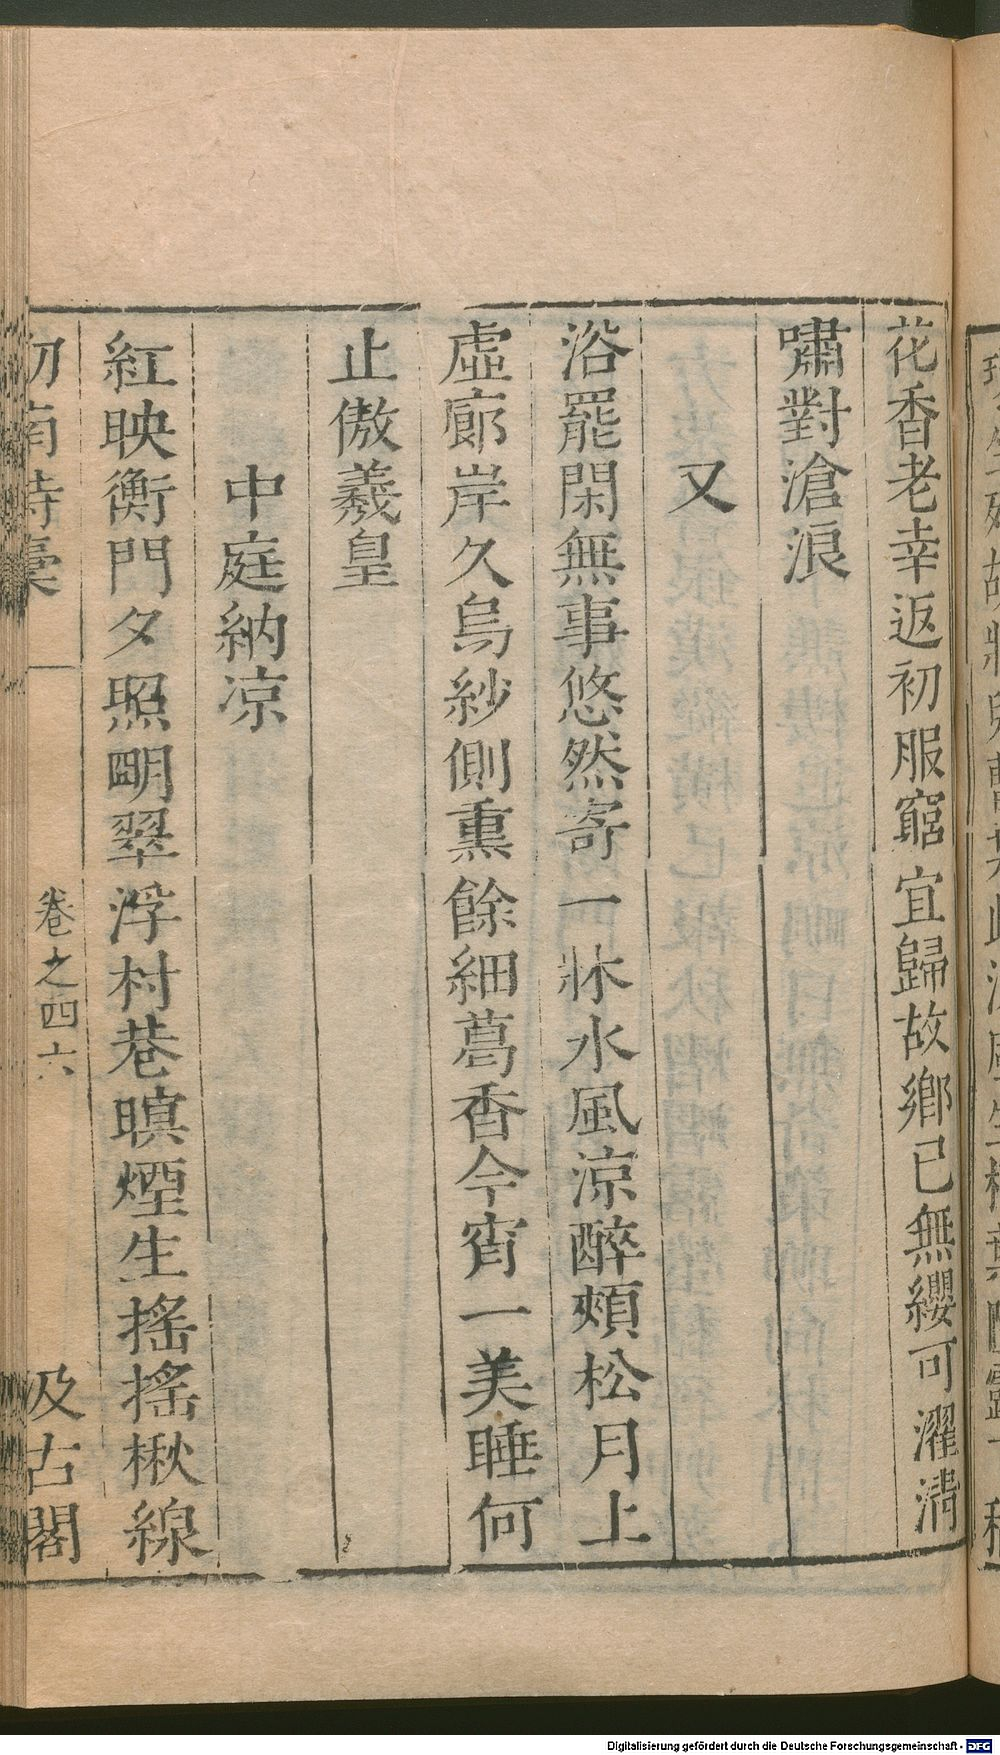 花香老幸返初服窮宜歸故鄉已無纓可濯清
嘯對滄浪
又
浴罷閑無事悠然寄一牀水風涼醉頰松月上
虛廊岸久烏紗側熏餘細葛香今宵一美睡何
止傲羲皇
中庭納凉
紅映衡門夕照明翠浮村巷暝煙生搖搖楸線
劍南詩稾
卷之四六
汲古閣
Digitalisierung gefördert durch die Deutsche Forschungsgemeinschaft - DFG